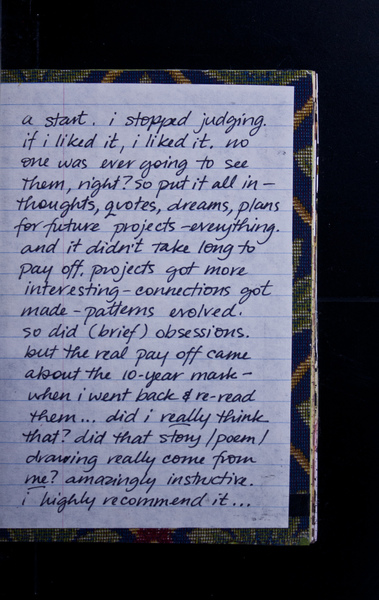 a start. i stopped judging.
if i liked it, i liked it. no
one was ever going to see
them, right? so put it all in -
thoughts, quotes, dreams, plans
for future projects - everything.
and it didn't take long to
pay off. projects got more
interesting - connections got
made - patterns evolved.
so did (brief) obsessions.
but the real pay off came
about the 10-year mark -
when i went back & re-read
them... did i really think
that? did that story/poem/
drawing really come from
me? amazingly instructive.
i highly recommend it...